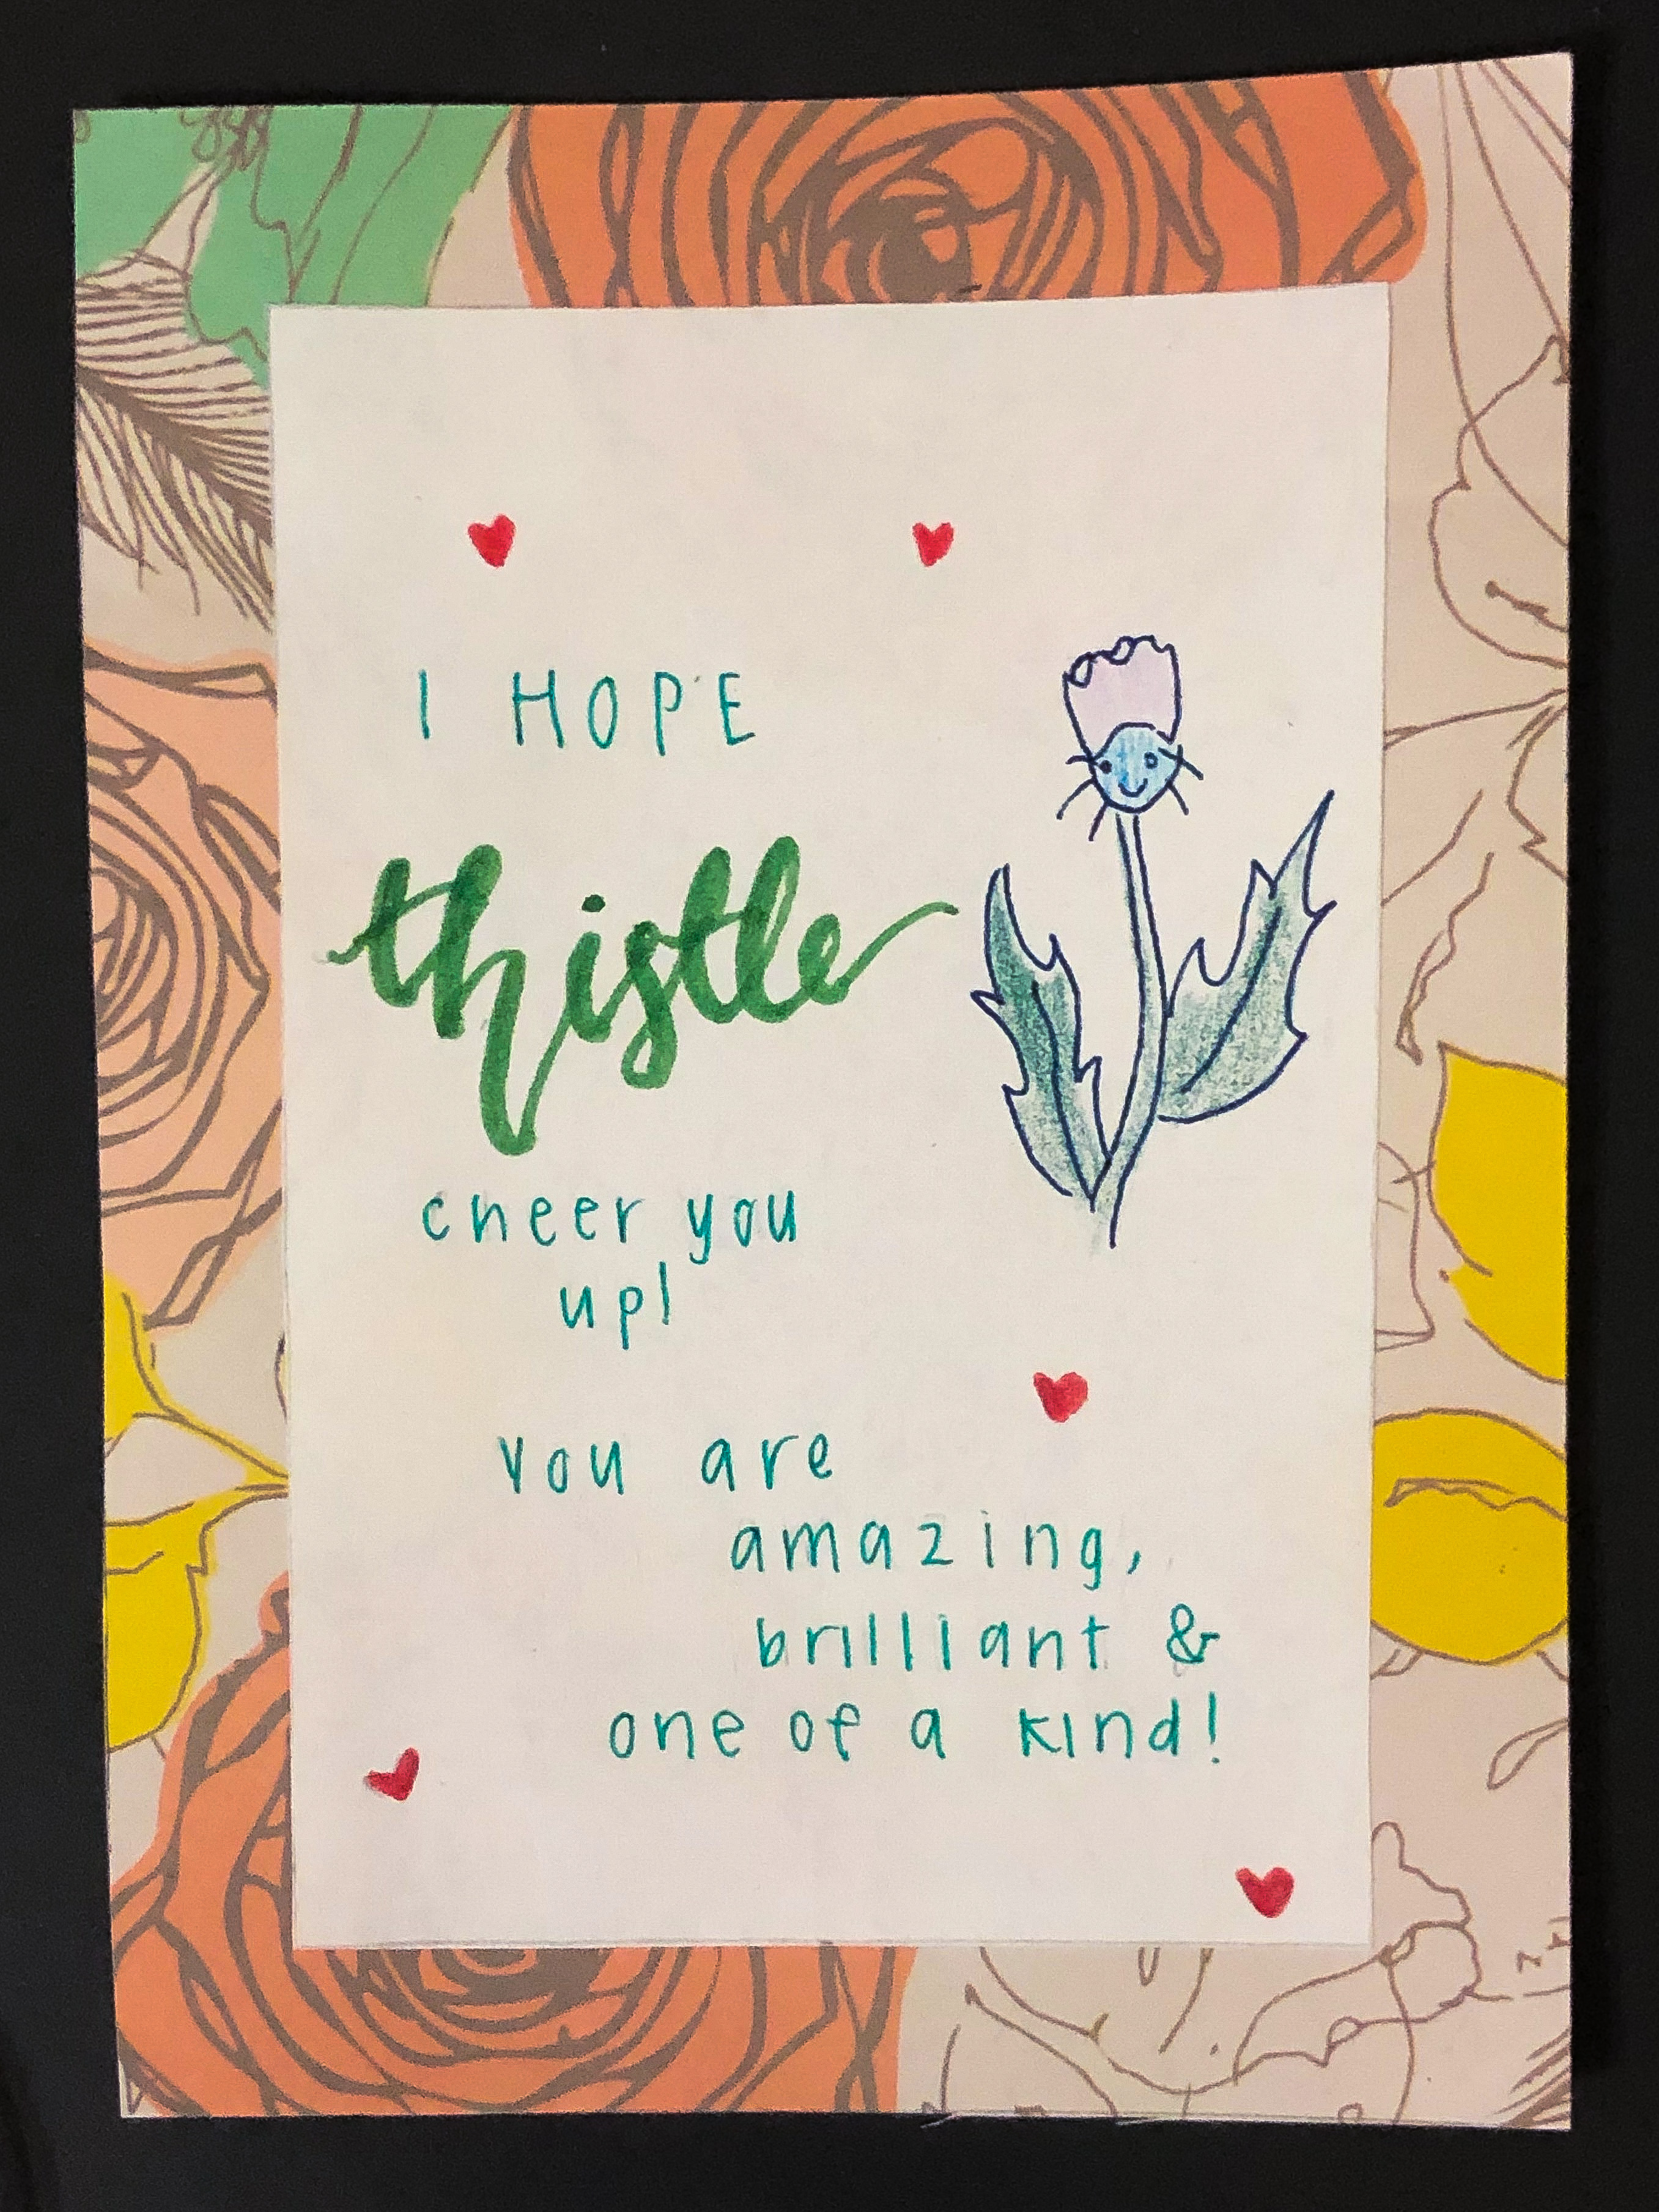 I HOPE
thistle
cheer you
up!
You are
amazing,
brilliant &
one of a kind!